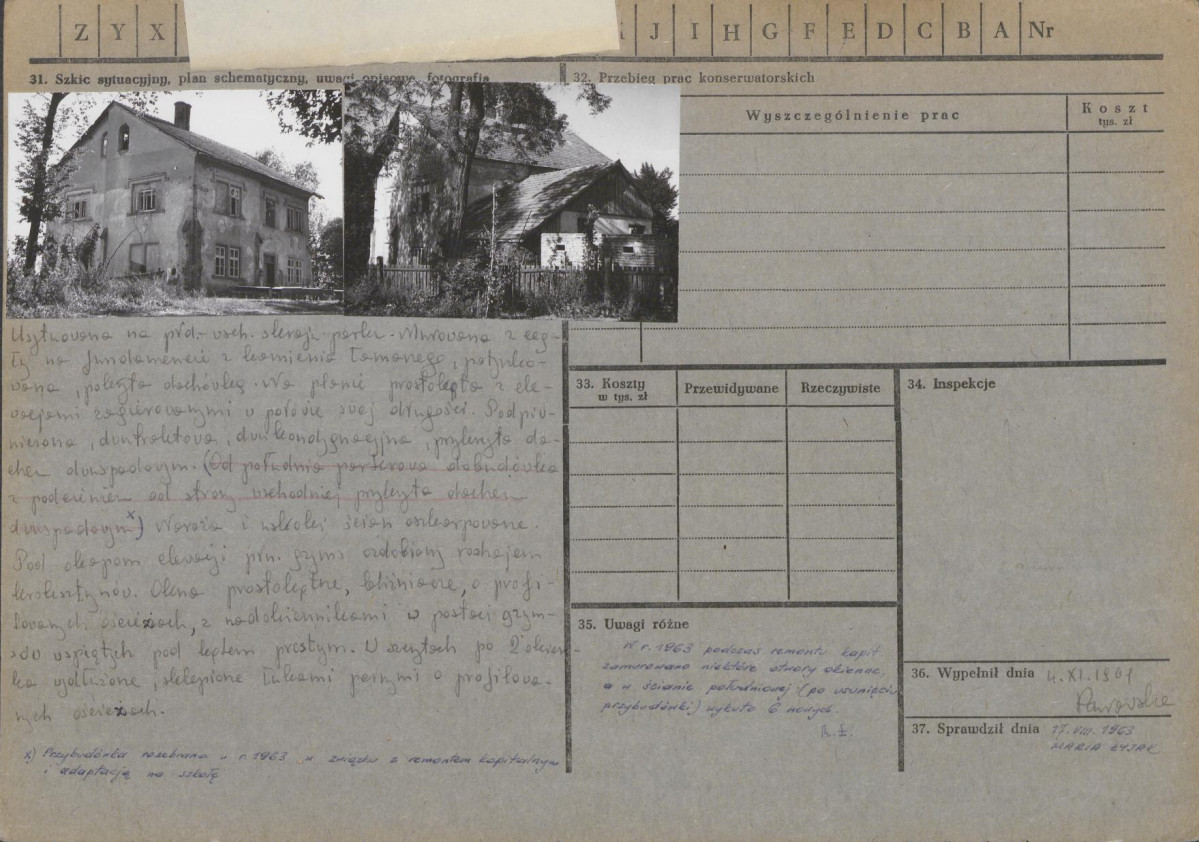 Z Y X J I H G F E D C B A Nr
31. Szkic sytuacyjny, plan schematyczny, uwagi opisowe, fotografia
32. Przebieg prac konserwatorskich
Wyszczególnienie prac
Koszt
tys. zł
Usytuowana na płd.-wsch. skraju parku. Murowana z ceg-
ły na fundamencie z kamienia łamanego, potynko-
wana, pokryta dachówką. Na planie prostokąta z ele-
wacjami w połowie swej długości. Podpiw-
niczona, dwutraktowa, dwukondygnacyjna, przykryta da-
chem dwuspadowym. (Od południa parterowa dobudówka
z podcieniem od strony wschodniej przykryta dachem
dwuspadowym x) Naroża i ścian oszkarpowane.
Pod okapem elewacji płn. gzyms ozdobiony rodzajem
kroksztynów. Okna prostokątne, bliźniacze, o profi-
lowanych ościeżach, z nadokiennikami w postaci gzym-
su wspiętych pod kątem prostym. W szczytach po 2 okien-
ka wydłużone, sklepione łukami pełnymi o profilowa-
nych ościeżach.
x) Przybudówka rozebrana w r. 1963 w związku z remontem kapitalnym
i adaptacją na szkołę
33. Koszty
w tys. zł
Przewidywane
Rzeczywiste
34. Inspekcje
35. Uwagi różne
W r. 1963 podczas remontu kapit.
zamurowano niektóre otwory okienne,
a w ścianie południowej (po usunięciu
przybudówki) wykuto 6 nowych.
R.Ł.
36. Wypełnił dnia 4.XI.1961
37. Sprawdził dnia 17.VIII.1963
MARIA ŁYJAK